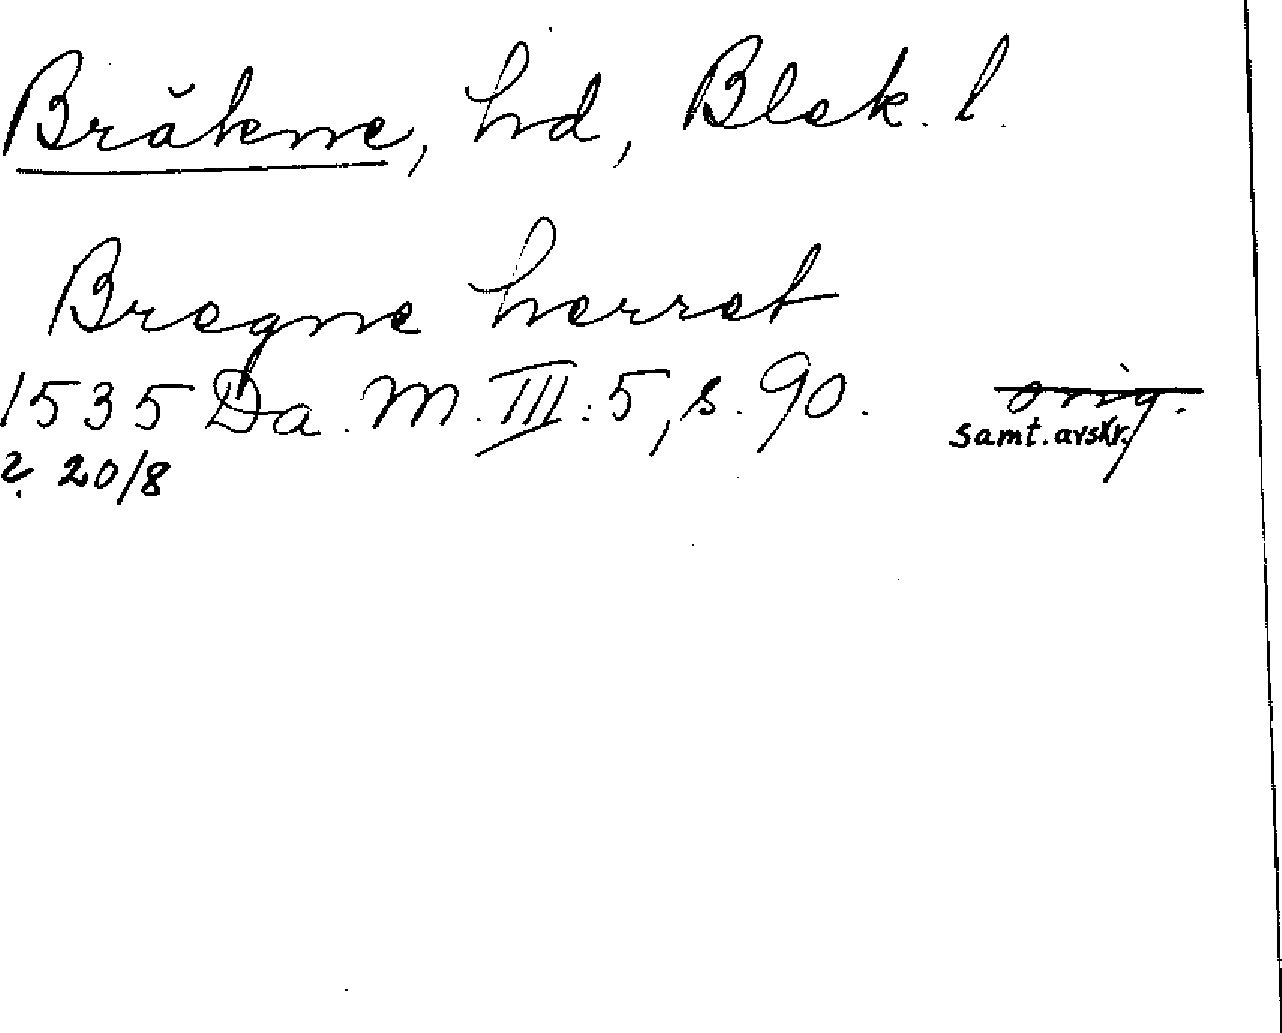 Bräkne, hd, Blek. l.
Bregne herret
1535 Da. M. III: 5, s. 90. orig.
samt. avskr.
? 20/8